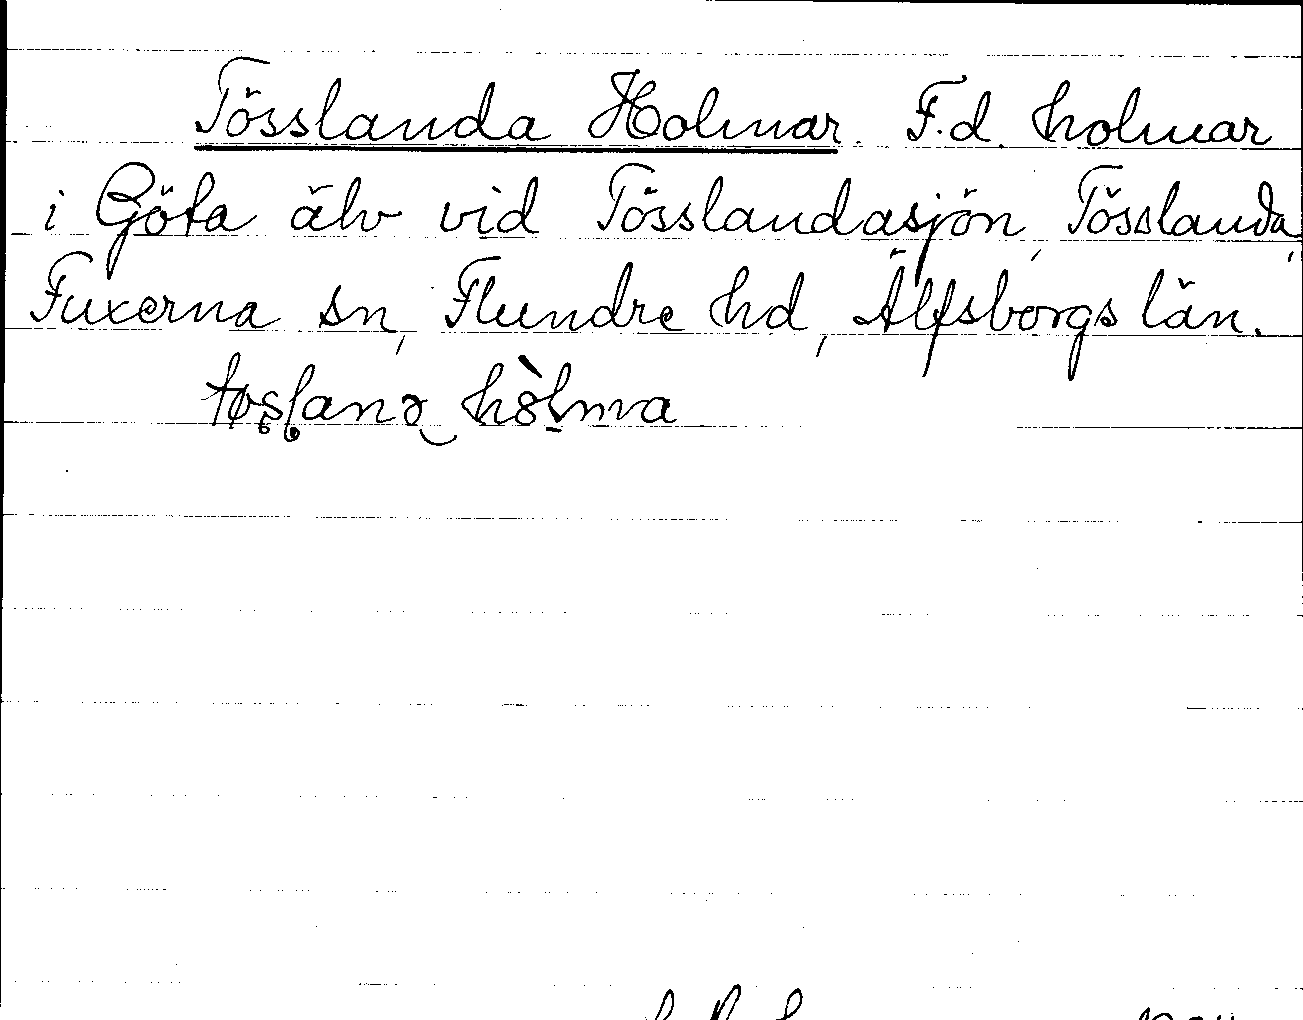 Tösslanda Holmar. F.d. holmar
i Göta älv vid Tösslandasjön, Tösslanda,
Fuxerna sn, Flundre hd, Älfsborgs län.